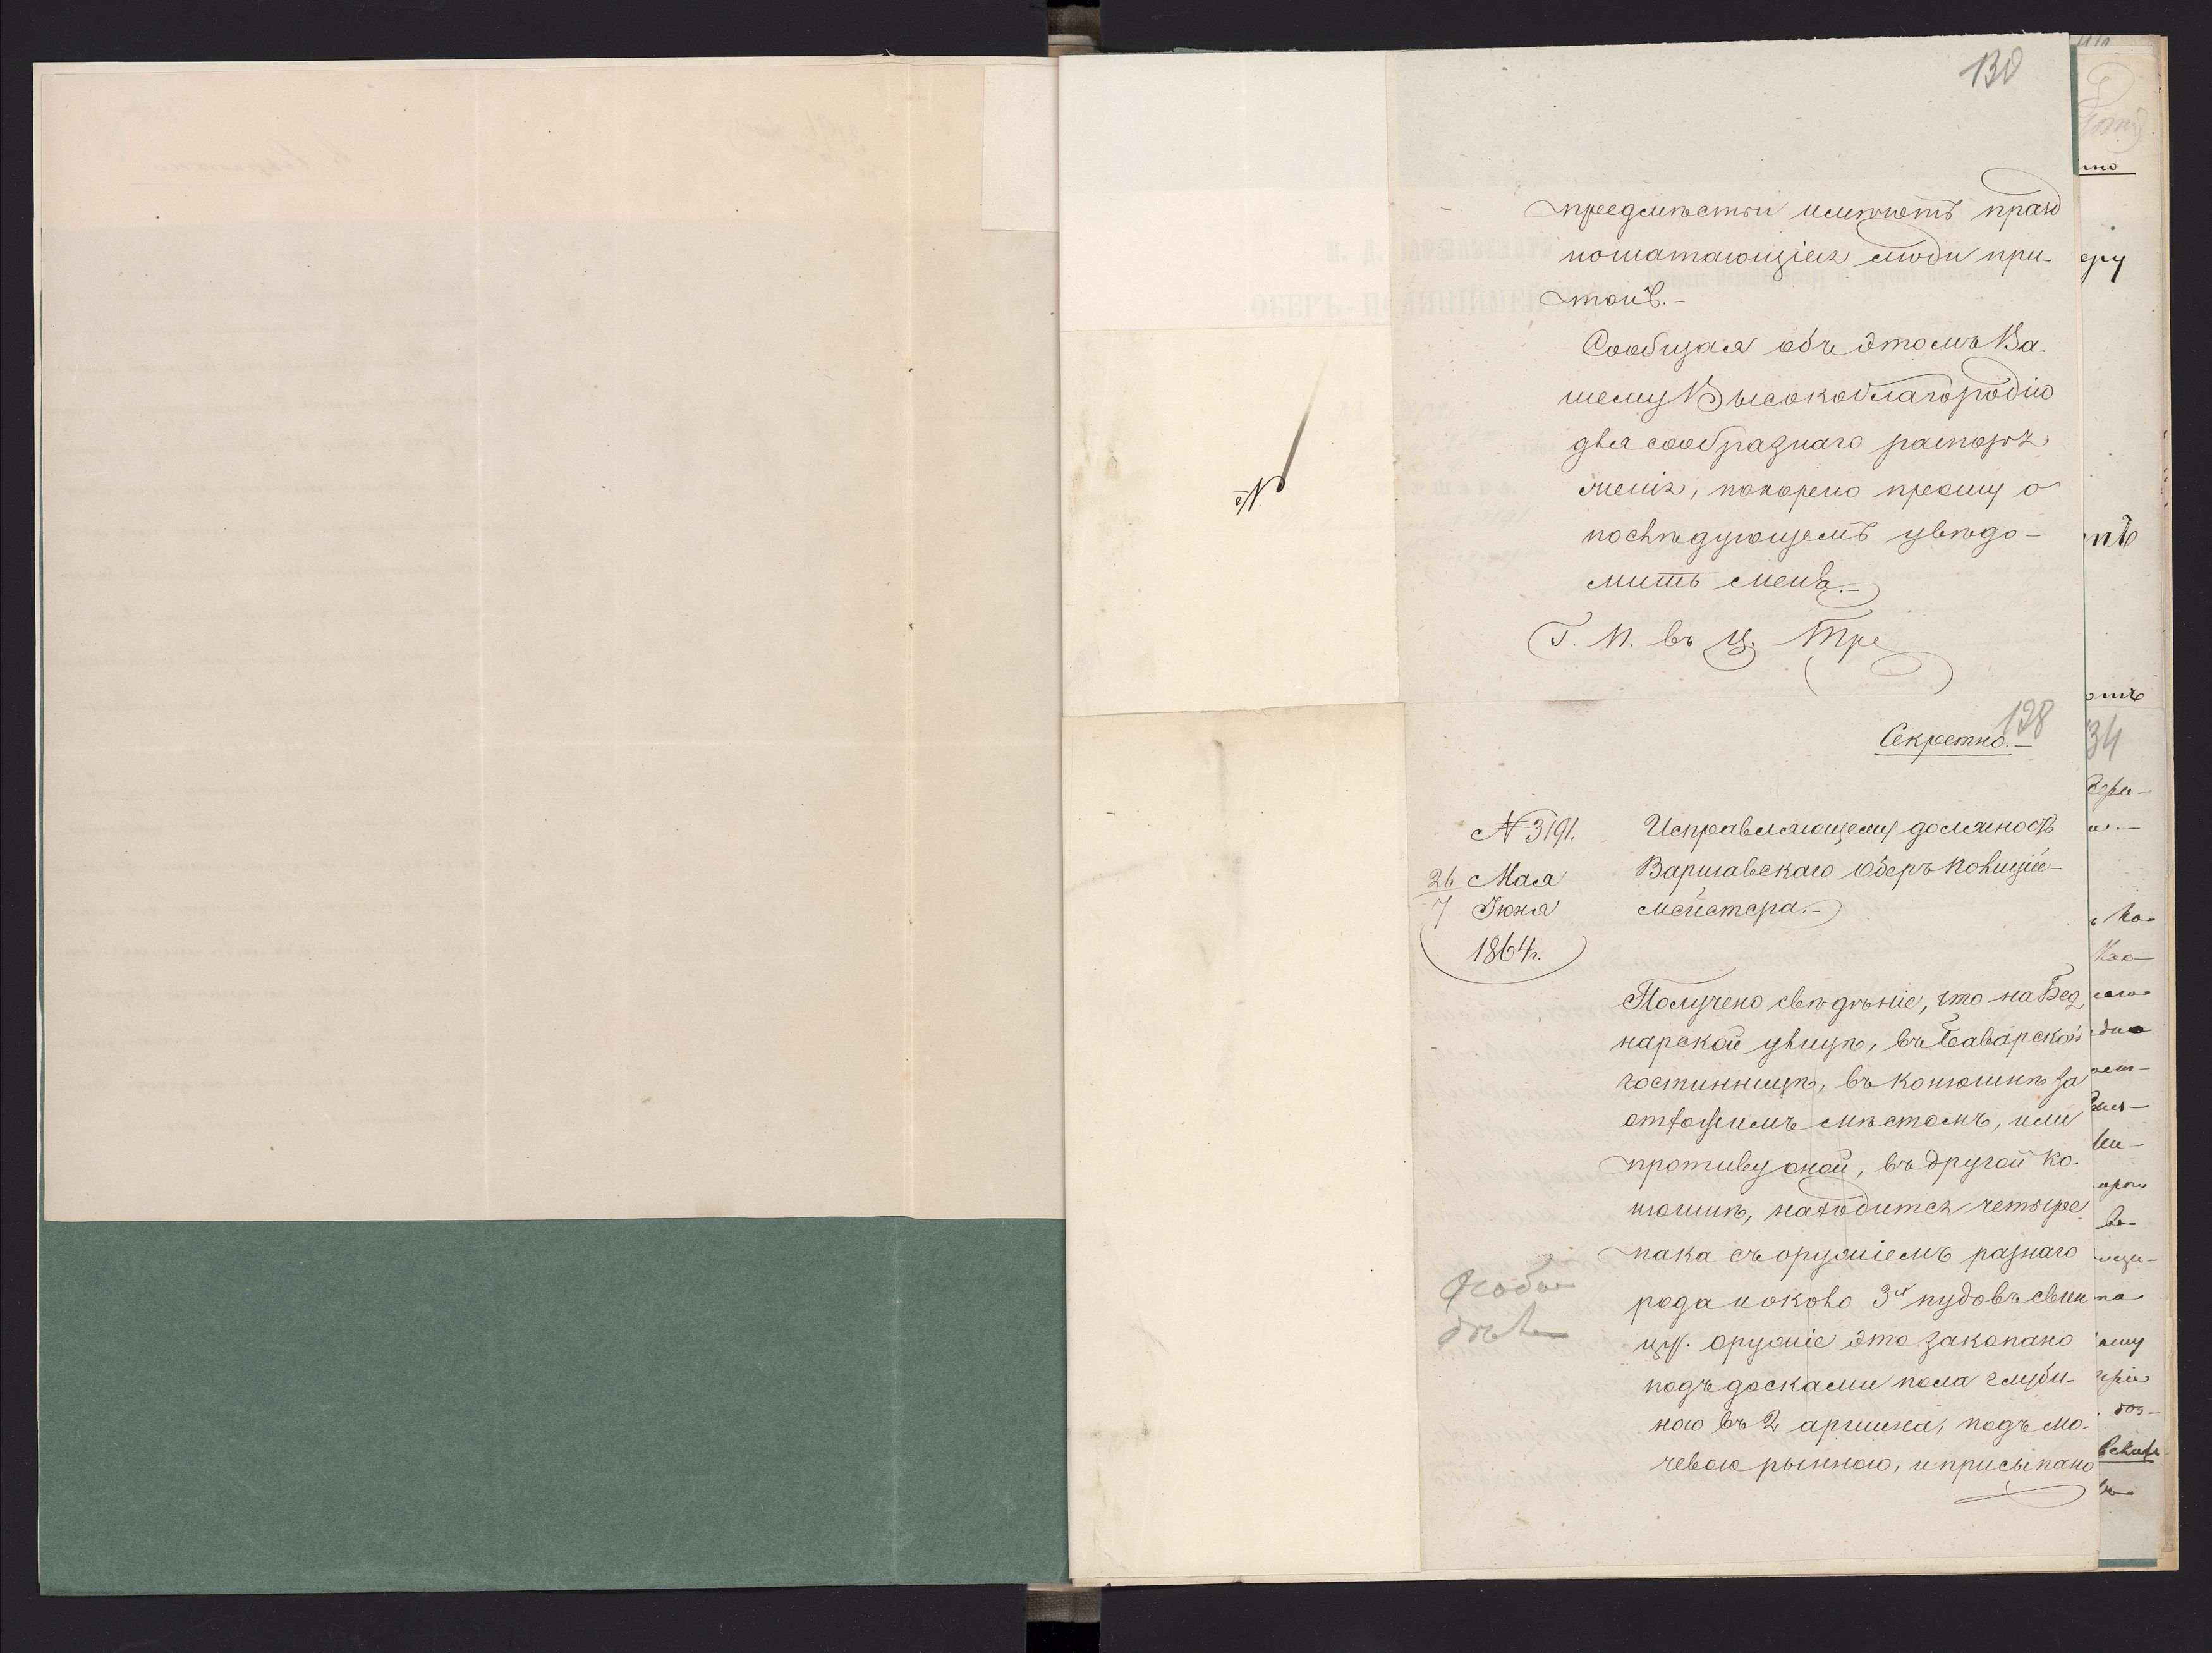 130
предмѣстьи имѣютъ празд
ношатающіеся люди при-
тонъ.-
Сообщая объ этомъ Ва-
шему Высокоблагородію
для сообразнаго распоря
женія, покорно прошу о
послѣдующемъ увѣдо-
мить меня.-
Г. П. въ Ц. Тре
128
Секретно.-
№ 3191.
26 Мая
7 Іюня
1864 г.
Исправляющему должность
Варшавскаго Оберъ Полиціи-
мейстера.-
Получено свѣдѣніе, что на Бед
нарской улицѣ, въ Баварской
гостинницѣ, въ конюшнѣ за
отхожимъ мѣстомъ, или
противу оной, въ другой ко-
нюшнѣ, находится четыре
пака съ оружіемъ разнаго
рода и около 3х пудовъ свин
цу. Оружіе это закопано
подъ досками пола глуби-
ною въ 2 аршина, подъ мо-
чевою рынною, и присыпано
Особое
дѣло
34